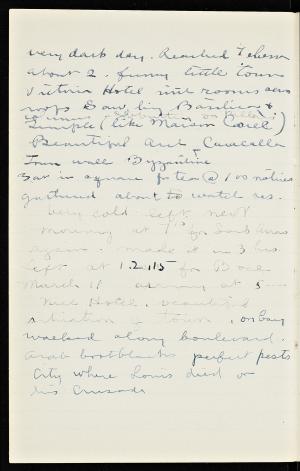 very dark day. Reached Tebessa
about 2. funny little town
Hotel nice rooms
roofs Saw big Basilica &
Temple (like Maison Carée)
Beautiful Arch Caracalla
Town wall Byzantine
Sat in square for tea @ 100 natives
gathered about to watch us.
Very cold left next
morning at 7 for Souk Aras
again. made it in 3 hrs.
Left at 1.2.15 for Bone
March 11 arriving at 5
Nice Hotel. beautiful
situation & town, on bay
walked along boulevard.
Arab bootblacks perfect pests
City where Louis died on
his Crusade